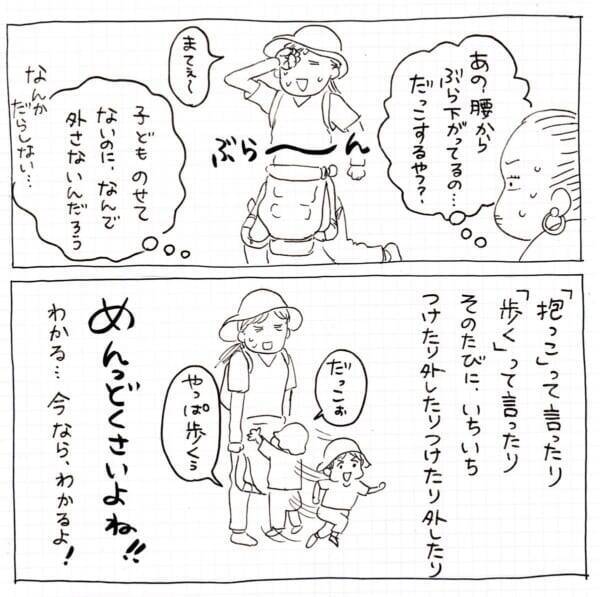 あの、腰から
ぶら下がってるの…
だっこするやつ?
まてぇ〜
ぶら〜〜ん
子どものせて
ないのに、なんで
外さないんだろう
なんか
だらしない…
「抱っこ」って言ったり
「歩く」って言ったり
そのたびに、いちいち
つけたり外したりつけたり外したり
だっこぉ
やっぱ歩くぅ
めんっどくさいよね!!
わかる…今なら、わかるよ!